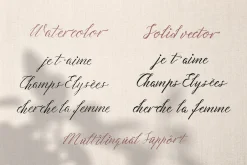 Watercolor
je t'aime
Champs Elysées
cherche la femme
Solid vector
je t'aime
Champs Elysées
cherche la femme
Multilingual Support